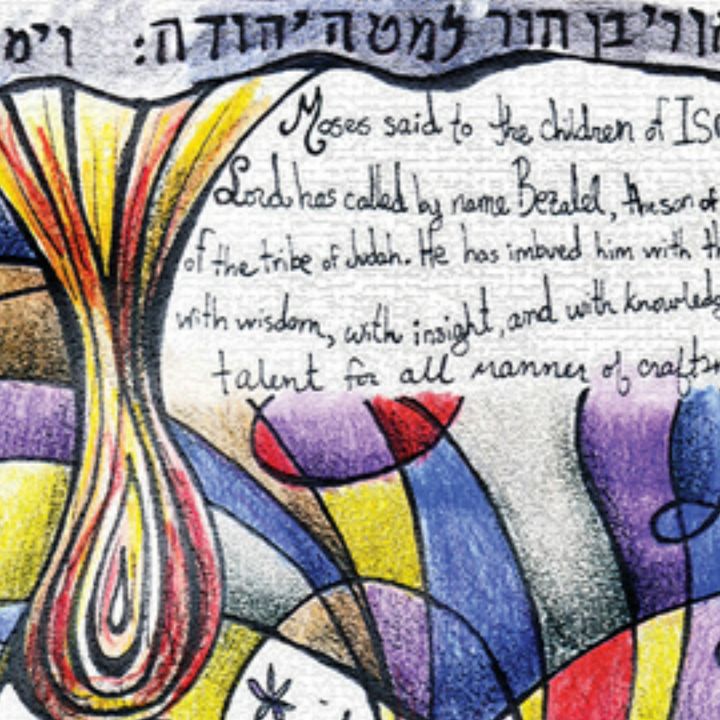 אורי בן חור למטה יהודה: וימ
Moses said to the children of IS
Lord has called by name Bezalel, the son of
of the tribe of Judah. He has imbued him with th
with wisdom, with insight, and with knowledg
talent for all manner of crafts